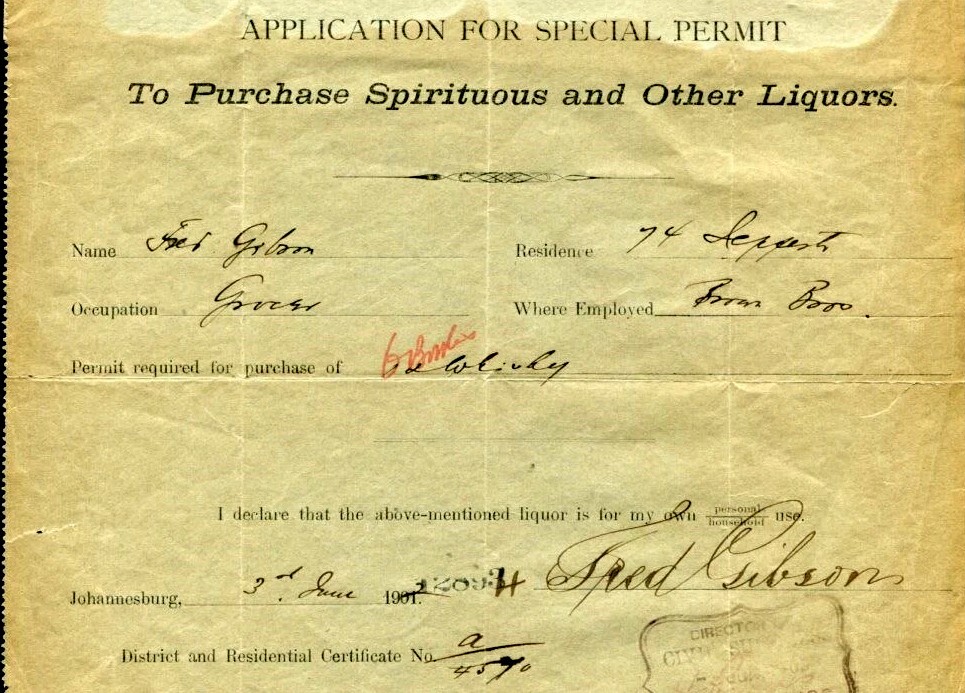 APPLICATION FOR SPECIAL PERMIT
To Purchase Spirituous and Other Liquors.
Name Fred Gibson Residence 74
Occupation Grocer Where Employed Brown Bros.
Permit required for purchase of 6 Bottles Whisky
I declare that the above-mentioned liquor is for my own personal household use.
Johannesburg, 3rd June 1901. Fred Gibson
District and Residential Certificate No. a/4570
DIRECTOR